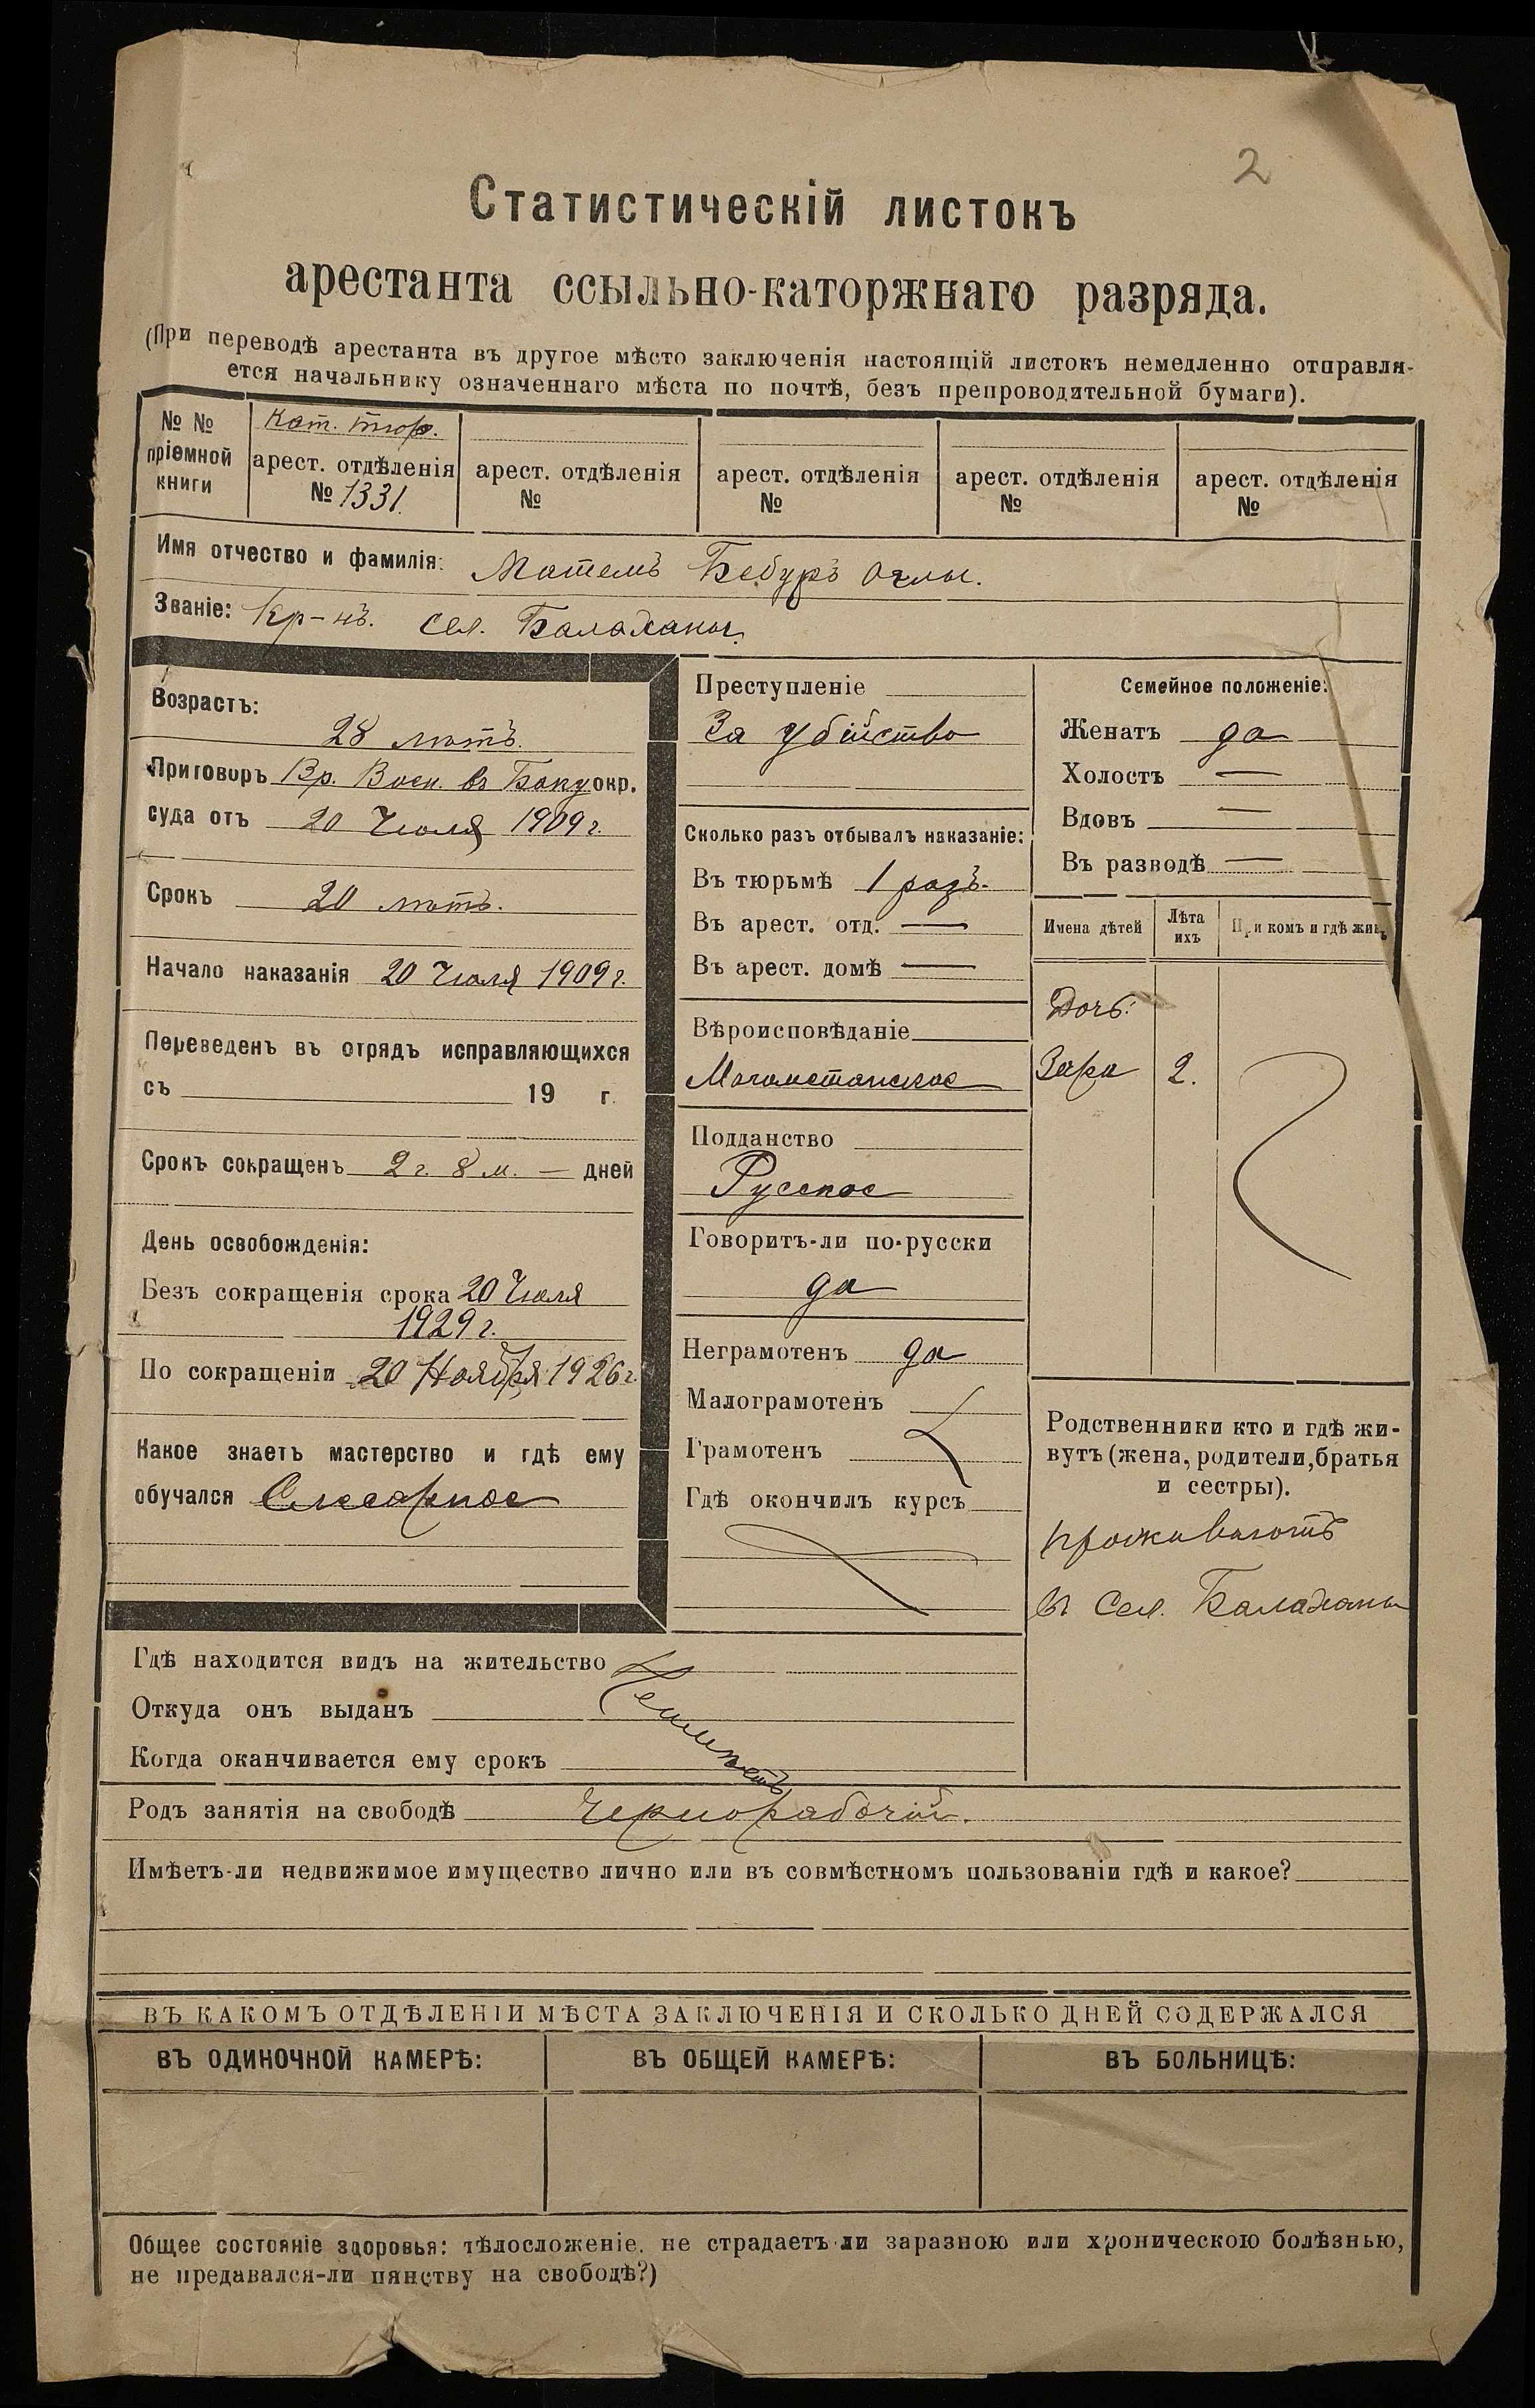 2
Статистическій листокъ
арестанта ссыльно-каторжнаго разряда.
(При переводѣ арестанта въ другое мѣсто заключенія настоящій листокъ немедленно отправля-
ется начальнику означеннаго мѣста по почтѣ, безъ препроводительной бумаги).
№ № пріемной книги
Кат. тюр. арест. отдѣленія № 1331.
арест. отдѣленія №
арест. отдѣленія №
арест. отдѣленія №
арест. отдѣленія №
Имя отчество и фамилія: Мошемъ Бебуръ Оглы.
Званіе: Кр-нъ. сел. Балаханы.
Возрастъ:
28 лѣтъ.
Приговоръ Вр. Воен. въ Баку окр.
суда отъ 20 Іюля 1909 г.
Срокъ 20 лѣтъ.
Начало наказанія 20 Іюля 1909 г.
Переведенъ въ отрядъ исправляющихся
съ 19 г.
Срокъ сокращенъ 2 г. 8 м. — дней
День освобожденія:
Безъ сокращенія срока 20 Іюля
1929 г.
По сокращеніи 20 Ноября 1926 г.
Какое знаетъ мастерство и гдѣ ему
обучался Слесарное
Преступленіе
За убійство
Сколько разъ отбывалъ наказаніе:
Въ тюрьмѣ 1 разъ.
Въ арест. отд. —
Въ арест. домѣ —
Вѣроисповѣданіе
Магометанское
Подданство
Русское
Говоритъ-ли по-русски
да
Неграмотенъ да
Малограмотенъ
Грамотенъ
Гдѣ окончилъ курсъ
Семейное положеніе:
Женатъ да
Холостъ —
Вдовъ —
Въ разводѣ —
Имена дѣтей
Лѣта ихъ
При комъ и гдѣ жив.
Дочь:
Зара 2.
Родственники кто и гдѣ жи-
вутъ (жена, родители, братья
и сестры).
проживаютъ
въ Сел. Балаханы
Гдѣ находится видъ на жительство
Откуда онъ выданъ
Когда оканчивается ему срокъ
Неимѣетъ
Родъ занятія на свободѣ Чернорабочій.
Имѣетъ-ли недвижимое имущество лично или въ совмѣстномъ пользованіи гдѣ и какое?
ВЪ КАКОМЪ ОТДѢЛЕНІИ МѢСТА ЗАКЛЮЧЕНІЯ И СКОЛЬКО ДНЕЙ СОДЕРЖАЛСЯ
ВЪ ОДИНОЧНОЙ КАМЕРѢ:
ВЪ ОБЩЕЙ КАМЕРѢ:
ВЪ БОЛЬНИЦѢ:
Общее состояніе здоровья: тѣлосложеніе, не страдаетъ-ли заразною или хроническою болѣзнью,
не предавался-ли пянству на свободѣ?)